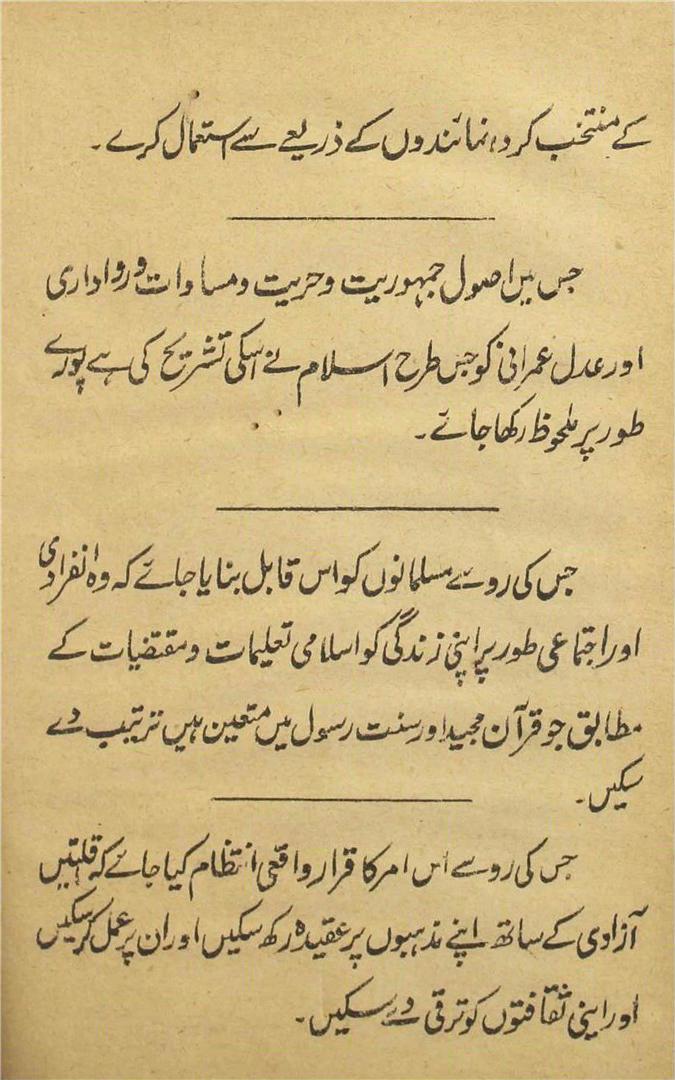 کے منتخب کردہ نمائندوں کے ذریعے سے استعمال کرے ۔
جس میں اصول جمہوریت و حریت و مساوات و رواداری
اور عدل عمرانی کو جس طرح اسلام نے اسکی تشریح کی ہے پورے
طور پر ملحوظ رکھا جائے ۔
جس کی رو سے مسلمانوں کو اس قابل بنایا جائے کہ وہ انفرادی
اور اجتماعی طور پر اپنی زندگی کو اسلامی تعلیمات و مقتضیات کے
مطابق جو قرآن مجید اور سنت رسول میں متعین ہیں ترتیب دے
سکیں ۔
جس کی رو سے اس امر کا قرار واقعی انتظام کیا جائے کہ اقلیتیں
آزادی کے ساتھ اپنے مذہبوں پر عقیدہ رکھ سکیں اور ان پر عمل کر سکیں
اور اپنی ثقافتوں کو ترقی دے سکیں ۔